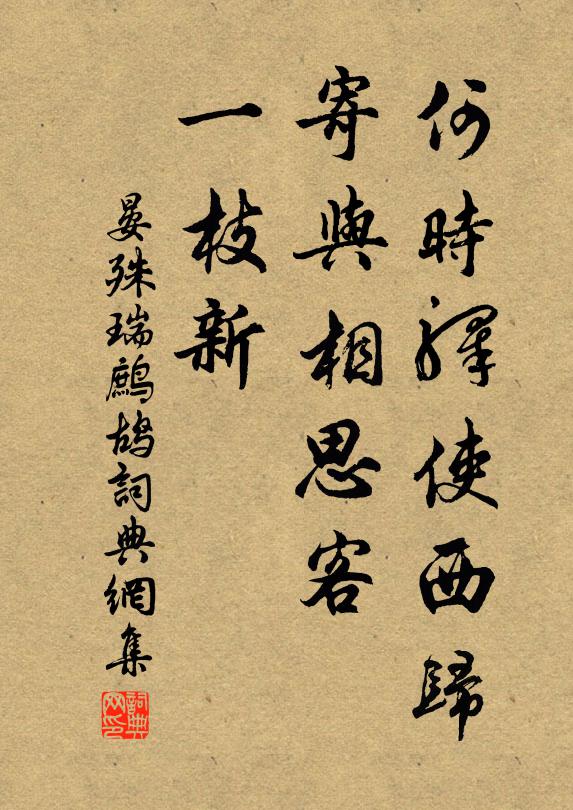 何時驛使西歸
寄與相思客
一枝新
晏殊瑞鷓鴣詞典網集
詞典网印